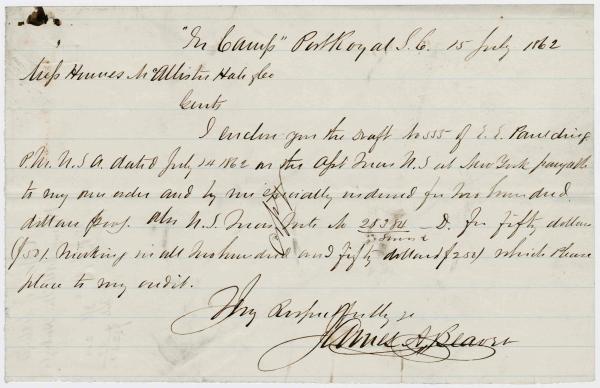 "In Camp" Port Royal S.C. 15 July 1862
Mess Humes McAllister Hale & Co
Gents
I enclose you the draft No 555 of E. E. Paulding
P.M. U.S.A. dated July 14 1862 on the Asst Treas U.S at New York payable
to my own order and by me specially endorsed for two hundred
dollars $200/. Also U.S. Treas Note No 28384 D. for fifty dollars
endorsed
($50/. Making in all two hundred and fifty dollars ($250) which Please
place to my credit.
Very Respectfully yr
James A. Beaver